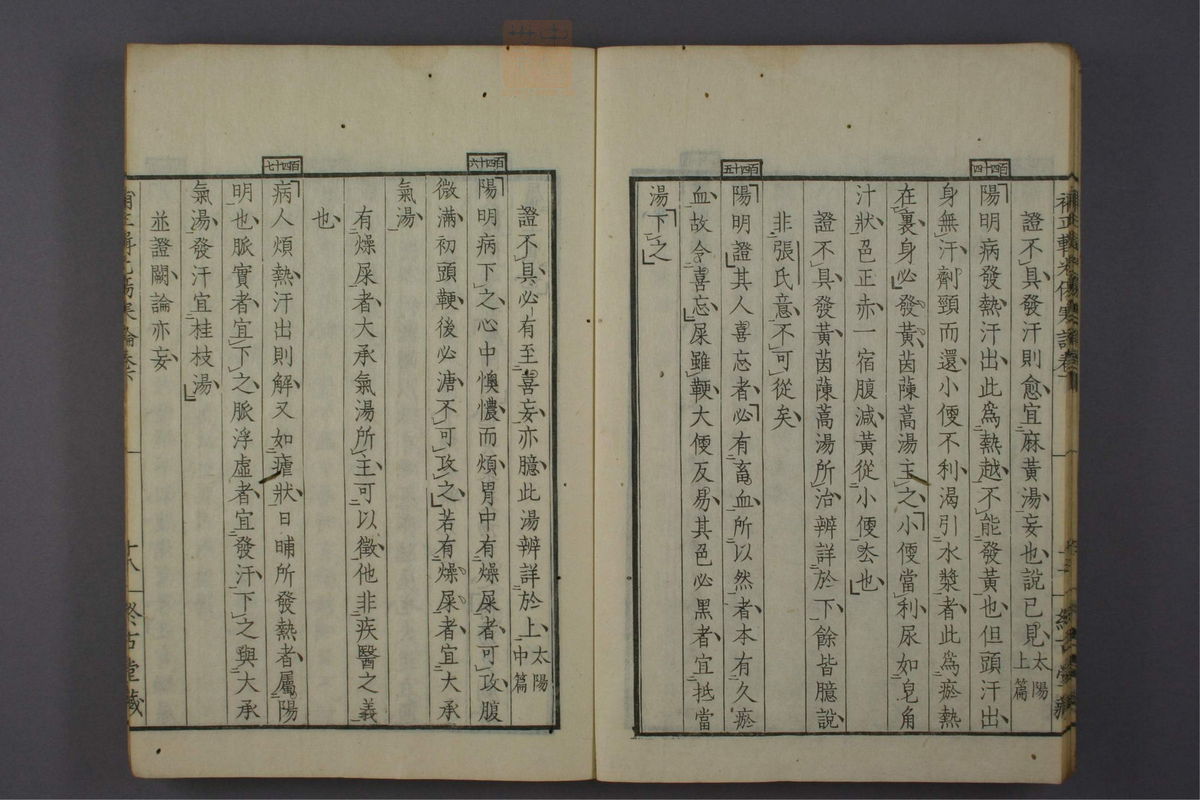 證不具發汗則愈宜麻黃湯妄也說已見太陽上篇
百四十四
陽明病發熱汗出此爲熱越不能發黃也但頭汗出
身無汗劑頸而還小便不利渴引水漿者此爲瘀熱
在裏身必發黃茵蔯蒿湯主之小便當利尿如皂角
汁狀色正赤一宿腹減黃從小便厺也
證不具發黃茵蔯蒿湯所治辨詳於下餘皆臆說
非張氏意不可從矣
百四十五
陽明證其人喜忘者必有畜血所以然者本有久瘀
血故令喜忘屎雖鞕大便反易其色必黑者宜抵當
湯下之
證不具必有至喜妄亦臆此湯辨詳於上太陽中篇
百四十六
陽明病下之心中懊憹而煩胃中有燥屎者可攻腹
微滿初頭鞕後必溏不可攻之若有燥屎者宜大承
氣湯
有燥屎者大承氣湯所主可以徵他非疾醫之義
也
百四十七
病人煩熱汗出則解又如瘧狀日晡所發熱者屬陽
明也脈實者宜下之脈浮虛者宜發汗下之與大承
氣湯發汗宜桂枝湯
並證闕論亦妄
十八
終古堂藏